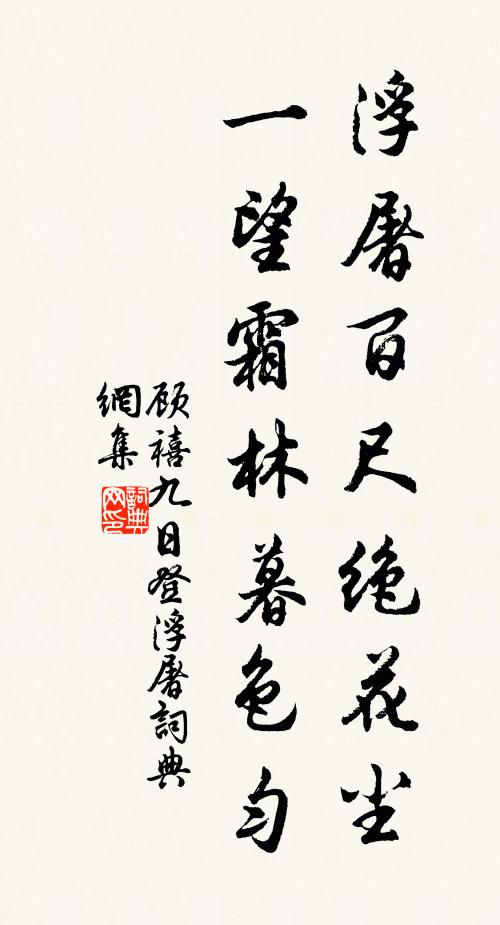 浮屠百尺绝花尘
一望霜林暮色匀
顾禧九日登浮屠詞典
網集
詞典網印